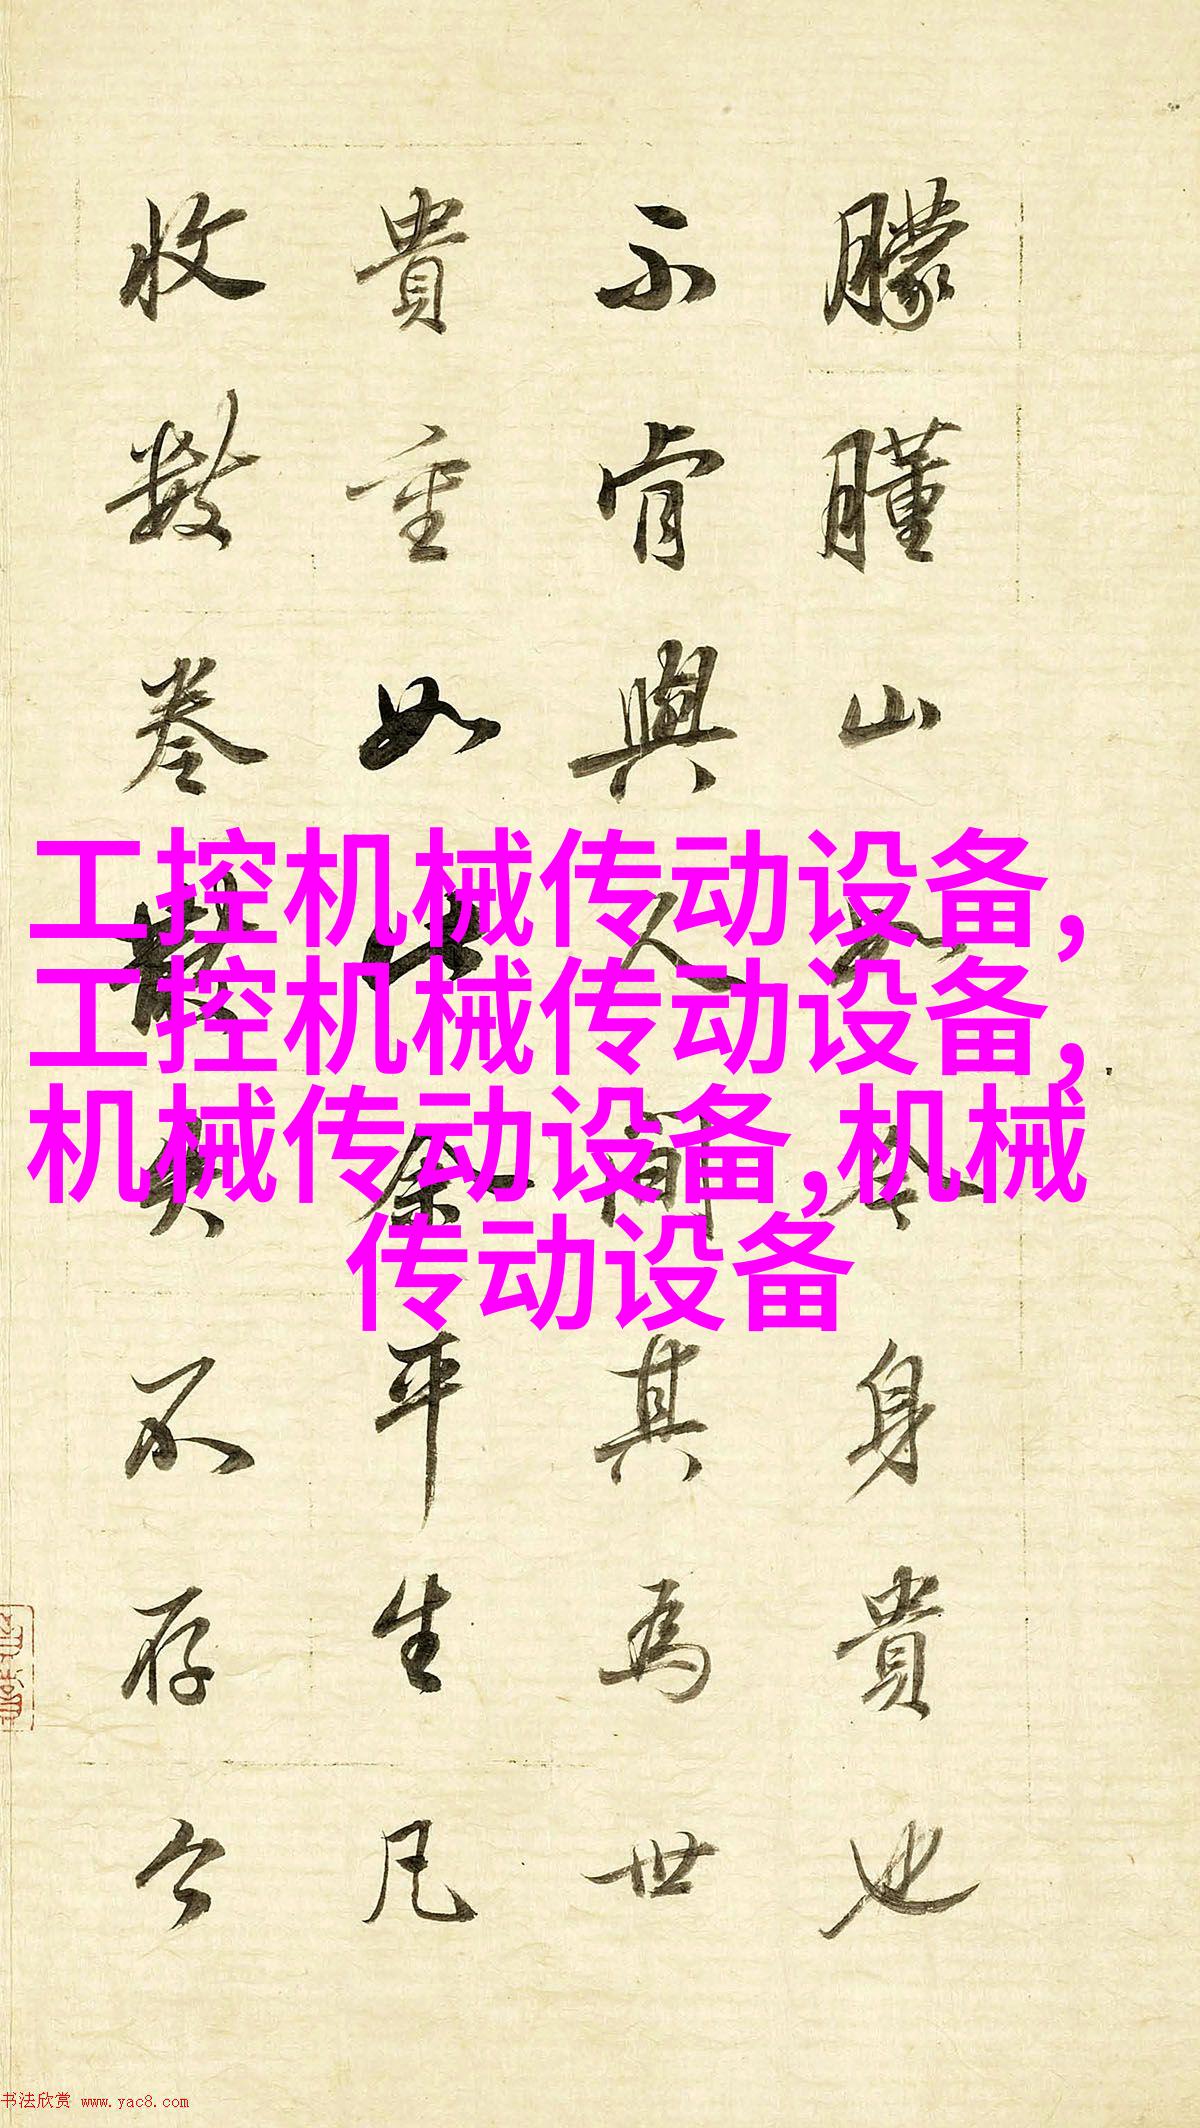 朦山身貴也
不肯與人間其為世
貴重如此余平生凡
收數卷散失不存今
工控机械传动设备,
工控机械传动设备,
机械传动设备,机械
传动设备
书法欣赏 www.yac8.com